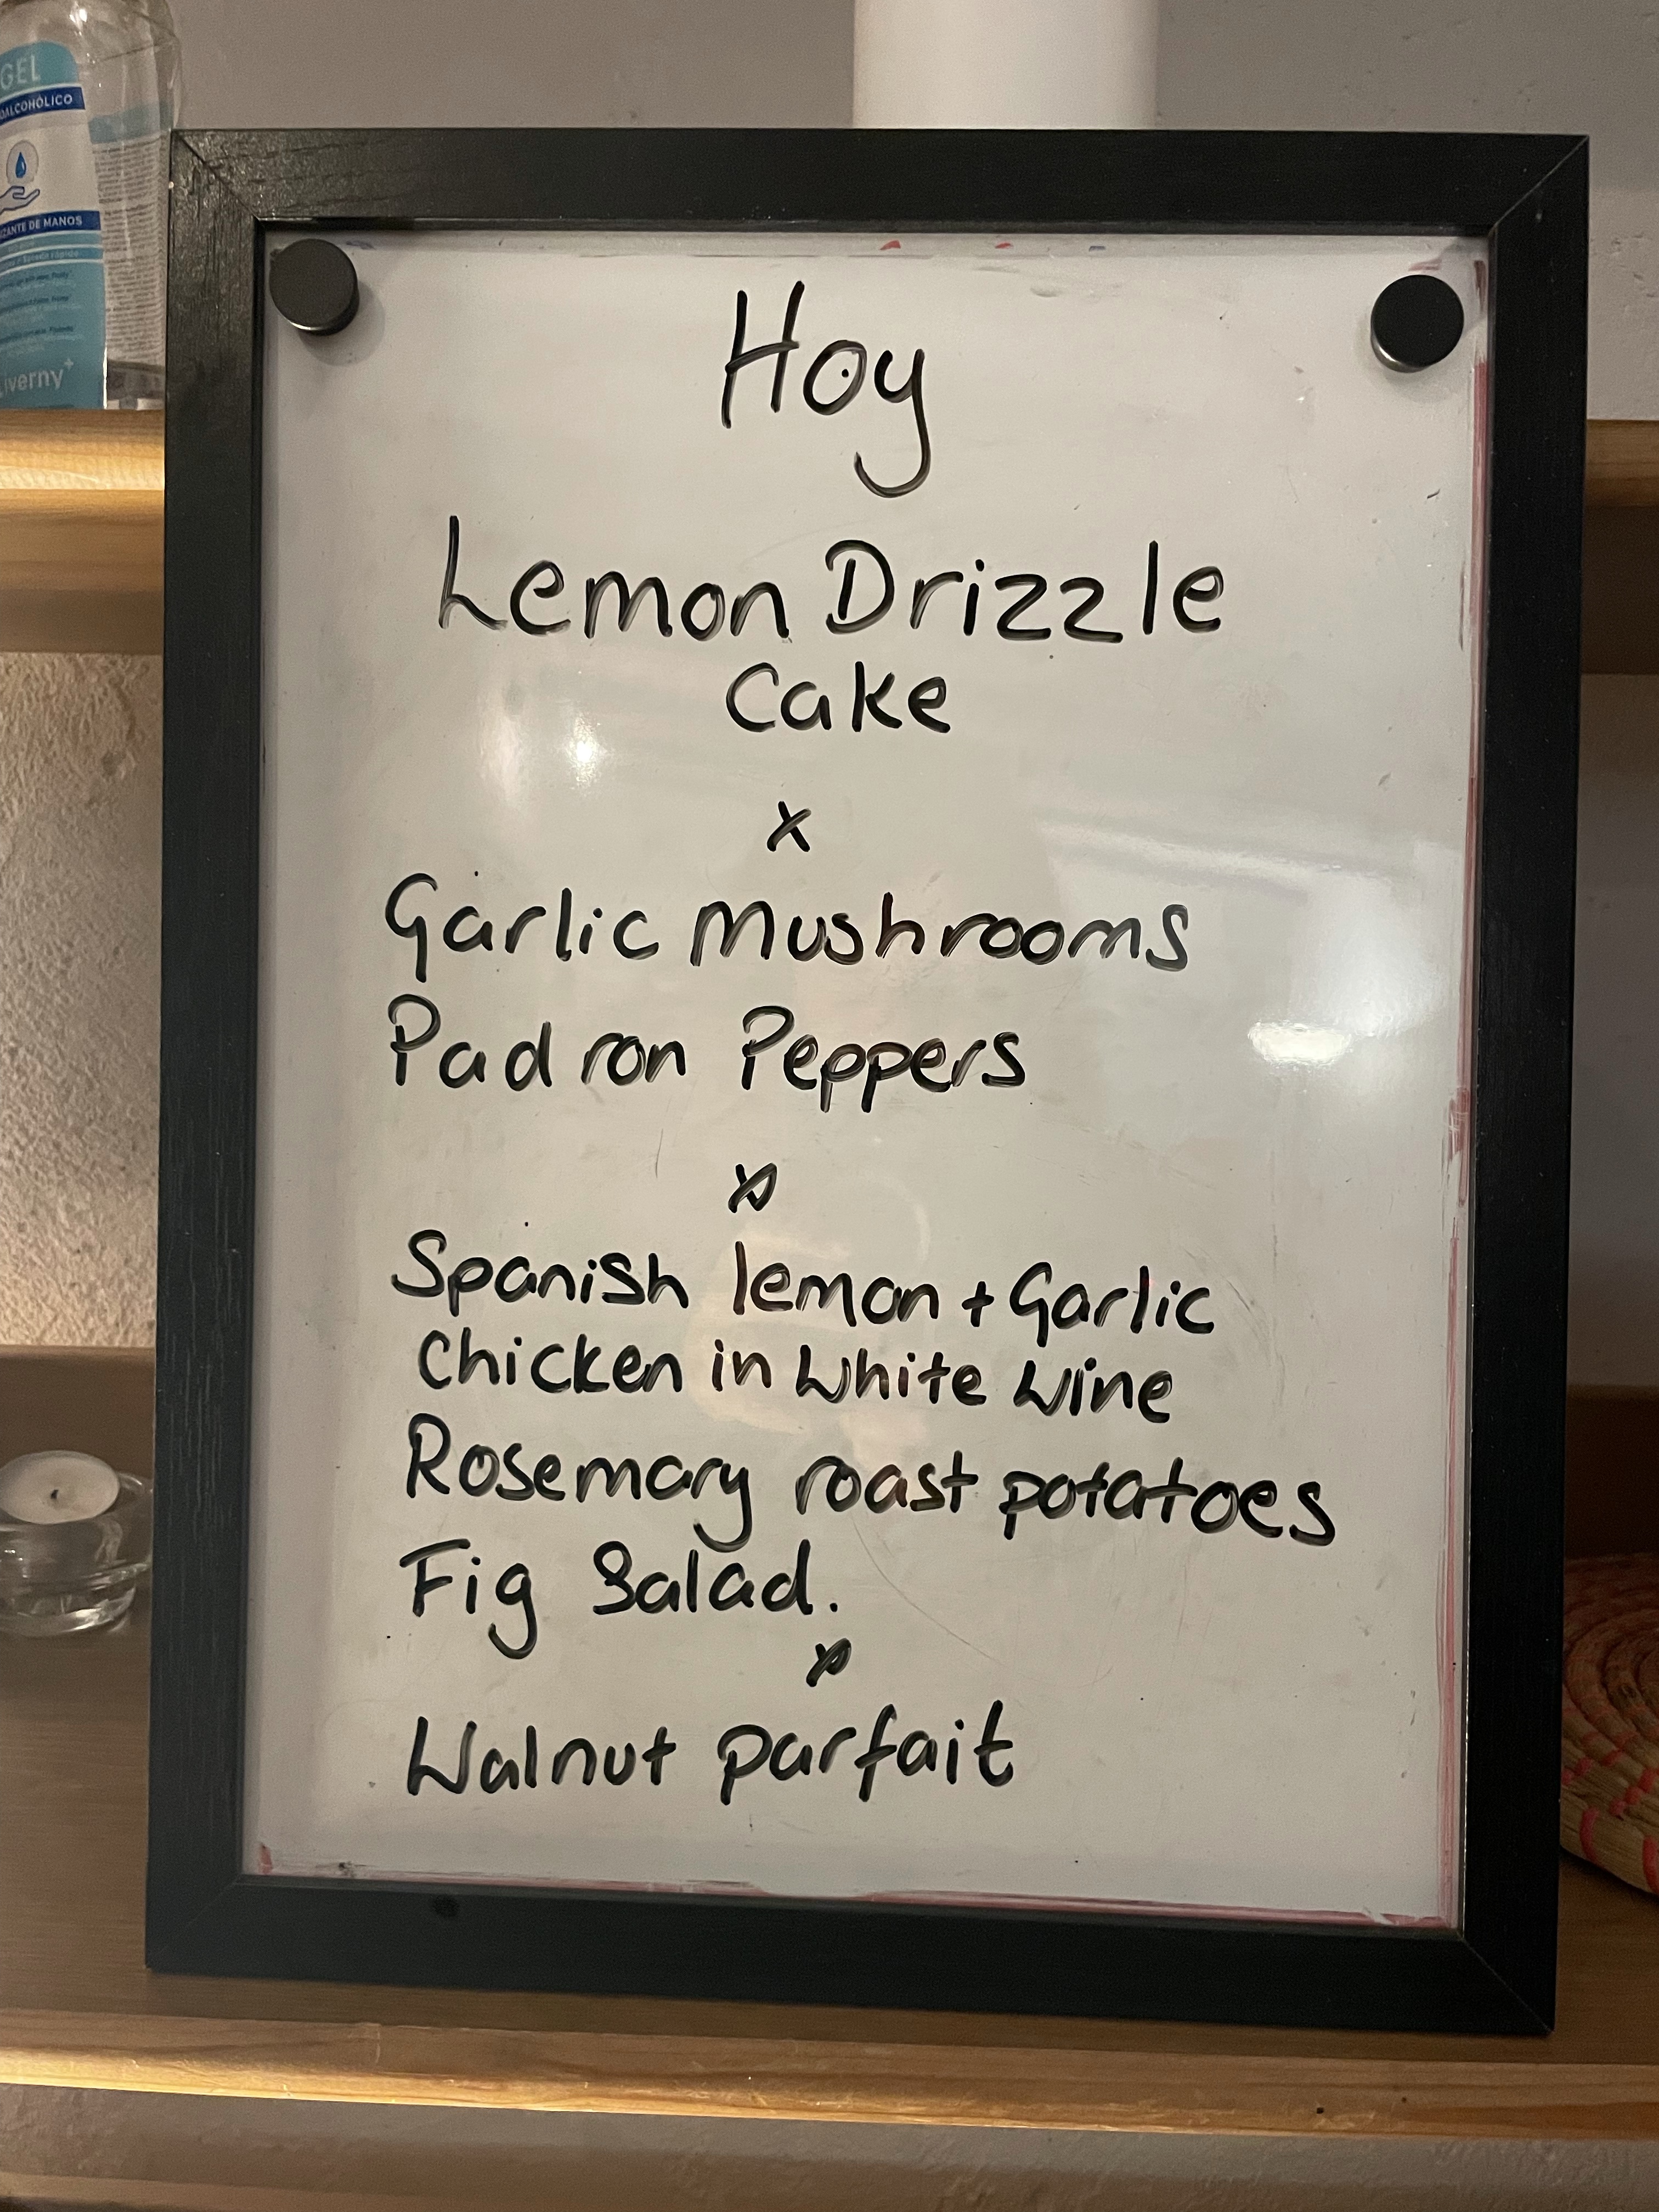 GEL
OALCOHÓLICO
IZANTE DE MANOS
iverny+
Hoy
Lemon Drizzle
Cake
x
Garlic Mushrooms
Padron Peppers
x
Spanish lemon + Garlic
Chicken in White Wine
Rosemary roast potatoes
Fig Salad.
x
Walnut parfait